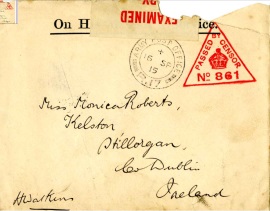 EXAMINED
On H ice.
ARMY POST OFFICE
16 SE
15
PASSED BY CENSOR
No 861
Miss Monica Roberts,
Kelston
Stillorgan,
Co Dublin
Ireland
H Watkins